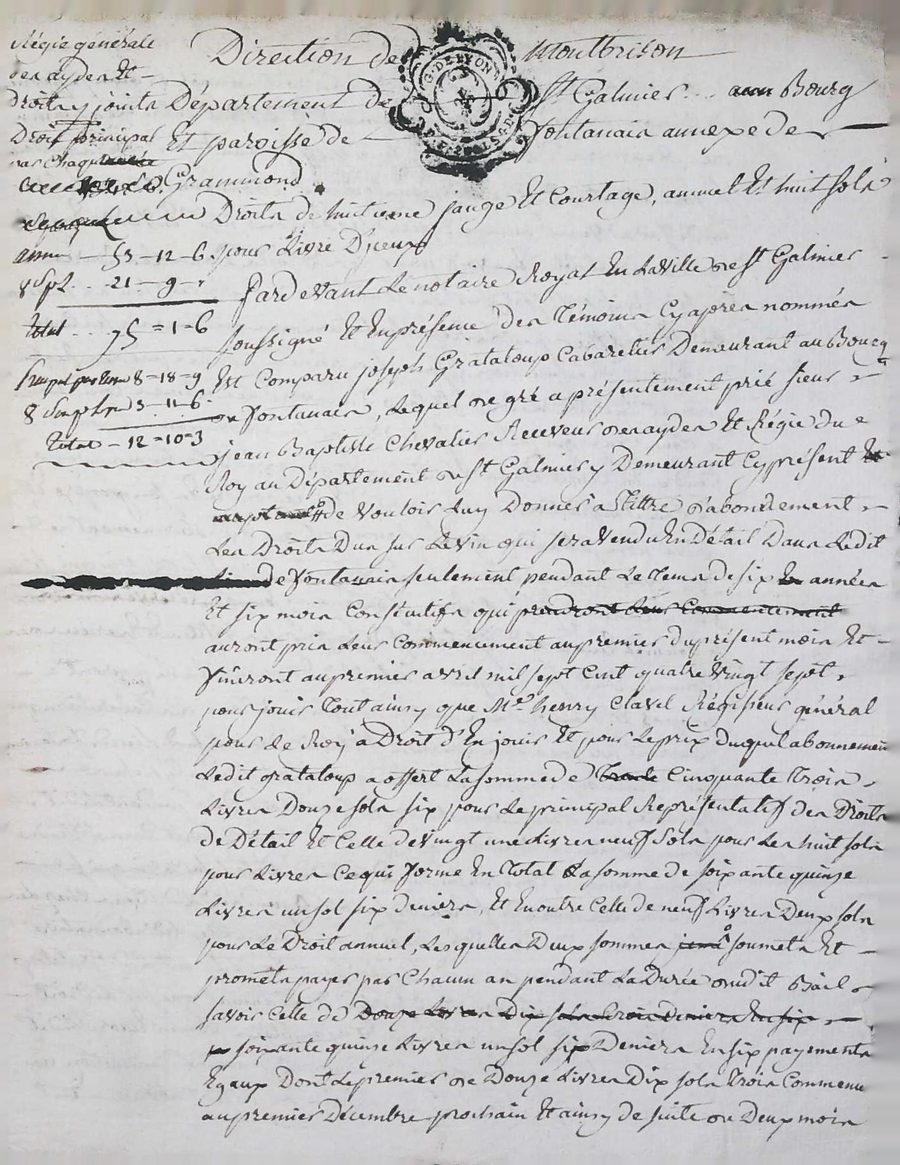 Régie générale
des aydes Et
Droits y joints
Droit principal
par Chaque
annu — 53 - 12 - 6
8 s pl. .. 21 — 9 - "
total .. 75 = 1 - 6
8 - 18 - 9
8 s 3 - 11 - 6
total — 12 = 10 = 3
Direction de Montbrison
G. DE LYON
Département de St Galmier ... Bourg
Et paroisse de fontanais annexe de
Grammond
Droits de huitieme jauge Et Courtage, annuel Et huit sols
pour Livre D'jceux
Pardevant Le notaire Royal En La Ville de St Galmier
soussigné Et En présence des Témoins Cy après nommés
Est Comparu joseph Grataloup Cabaretier Demeurant au Bourg
de fontanais, Lequel de gré a présentement prié sieur
jean Baptiste Chevalier Receveur des aydes Et Régie du
Roy au Département de St Galmier y Demeurant Cy présent
de Vouloir Luy Donner a Tittre d'abonnement
Les Droits Dus sur Le vin qui sera Vendu En Détail Dans Ledit
de fontanais seulement pendant Le Tems de six années
Et six mois Consécutifs qui prendront Leur Commencement
auront pris Leur Commencement au premier du présent mois Et
finiront au premier avril mil sept Cent quatre Vingt sept,
pour jouir Tout ainsy que Me henry Clavel Régisseur général
pour Le Roy a Droit d'En jouir Et pour Le prix Duquel abonnement
Ledit grataloup a offert La somme de Trente Cinquante Trois
Livres Douze sols six pour Le principal Représentatif des Droits
de Détail Et Celle de Vingt une Livres neuf Sols pour Les huit sols
pour Livres Ce qui forme En Total La somme de soixante quinze
Livres un sol six deniers, Et En outre Celle de neuf Livres Deux sols
pour Le Droit annuel, Lesquelles Deux sommes soumets Et
promets payer par Chacun an pendant La Durée dudit Bail
savoir Celle de Douze Livres Dix sols Trois Deniers En six
soixante quinze Livres un sol six Deniers En six payements
Egaux Dont Le premier de Douze Livres Dix sols Trois Commence
au premier Décembre prochain Et ainsy de suite de Deux mois